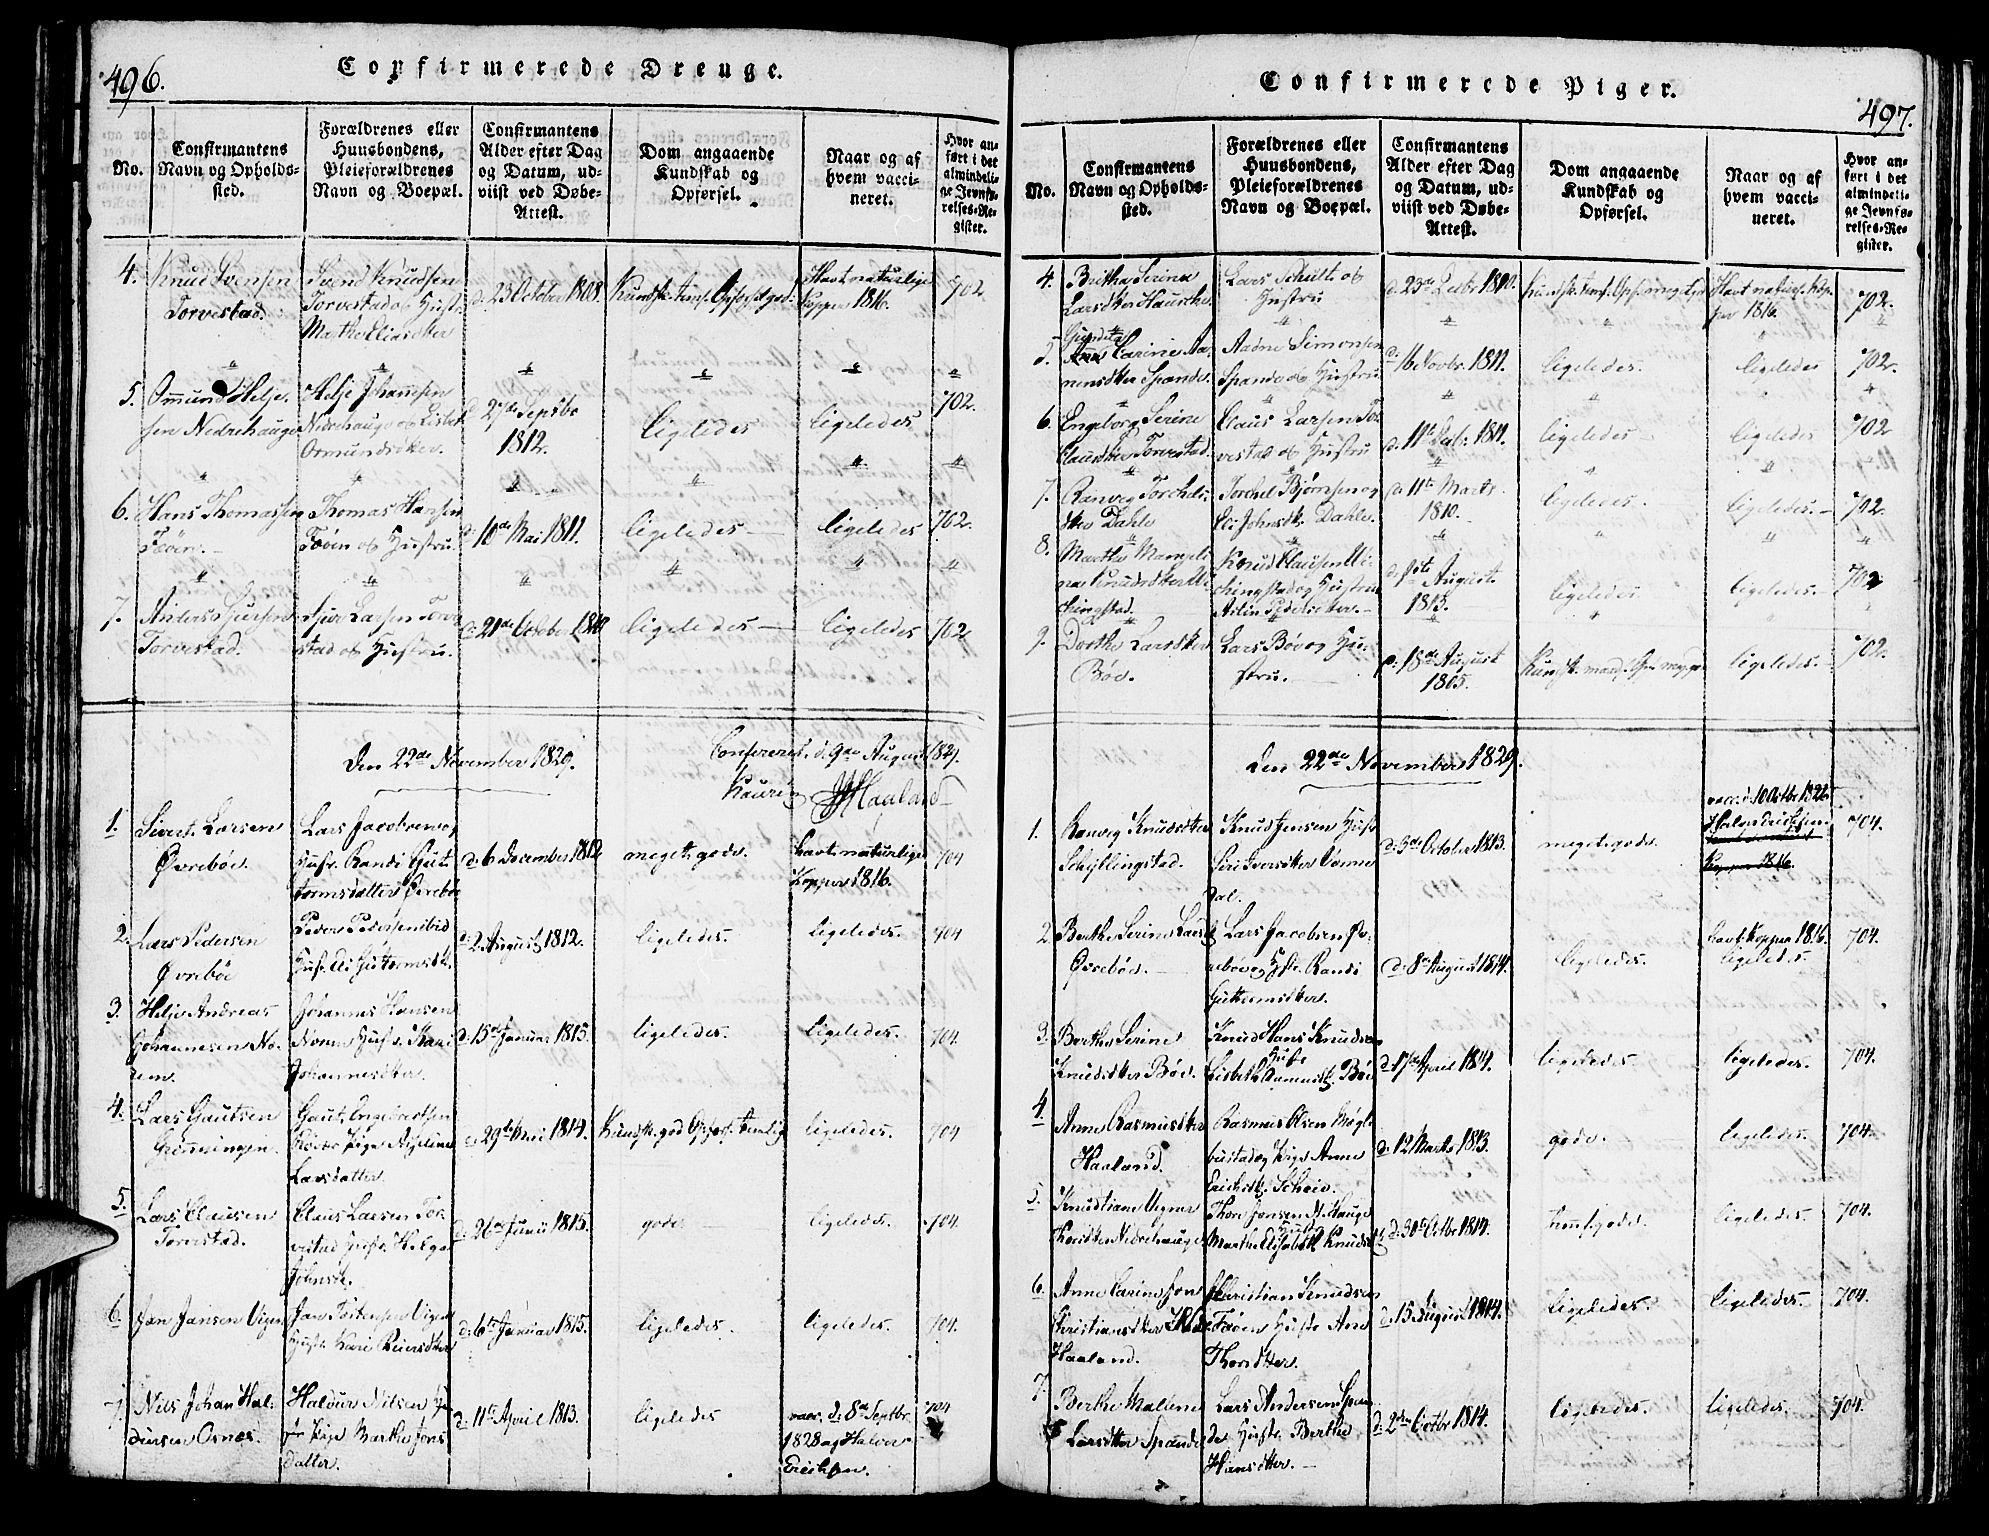 496.
Confirmerede Drenge.
No.
Confirmantens
Navn og Opholds-
sted.
Forældrenes eller
Huusbondens,
Pleieforældrenes
Navn og Boepæl.
Confirmantens
Alder efter Dag
og Datum, ud-
viist ved Døbe-
Attest.
Dom angaaende
Kundskab og
Opførsel.
Naar og af
hvem vacci-
neret.
Hvor an-
ført i det
almindeli-
ge Jevnfø-
relses-Re-
gister.
4.
Knud Svensen
Torvestad.
Svend Knudsen
Torvestad og Hustr.
Marthe Eliasdtter
d. 23 October 1808.
Kundsk. temf. Opførsel god.
Havt naturlige
Kopper 1816.
702
5.
Ommund Helje-
sen Nedrehauge
Helje Johannsen
Nedrehauge og Lisbet
Ormundsdtter.
d. 27de Septbr
1812.
ligeledes
ligeledes
702.
6.
Hans Thomassen
Føen.
Thomas Hansen
Føen og Hustru.
d. 10de Mai 1811.
ligeledes
ligeledes
702.
7.
Anders
Torvestad.
Larsen Torve-
stad og Hustru.
d. 21de October 1810
ligeledes
ligeledes
702
Den 22de November 1829.
Confereret d. 9de August 1829.
Haaland
1.
Sivert Larsen
Øvrebøe
Lars Jacobsen og
Hustr. Randi Gut-
tormsdatter Øvrebøe
d. 6 December 1812
meget gode.
havt naturlige
Kopper 1816.
704
2.
Lars Pedersen
Øvrebøe
Peder Pedersen ibid
Hustr. Eli Guttormsdt.
d. 2 August 1812.
ligeledes.
ligeledes.
704
3.
Helje Andreas
Johannesen No-
rem.
Johannes Hansen
Norem Hustr. Kari
Johannesdtter.
d. 15de Januar 1815.
ligeledes.
ligeledes.
704
4.
Lars Gautsen
Grønningen.
Gaut Engebretsen
Pige
Larsdatter
d. 29de Mai 1814.
Kundsk. god Opførs. temlig
ligeledes.
704
5.
Lars Clausen
Torvestad.
Claus Larsen Tor-
vestad Hustr. Helga
Johnsdt.
d. 26de Junii 1815.
gode
ligeledes.
704.
6.
Jan Jansen Vigen
Jan Tostensen Vigen
Hustr. Kari Reiersdtter
d. 6te Januar 1815.
ligeledes.
ligeledes.
704.
7.
Nils Johan Hal-
dursen Osnes.
Haldur Nilsen
Pige Marthe Jons-
datter.
d. 11te April 1813.
ligeledes
vacc. d. 8de Septbr.
1828 af Halvor
Erichsen.
704
497.
Confirmerede Piger.
No.
Confirmantens
Navn og Opholds-
sted.
Forældrenes eller
Huusbondens,
Pleieforældrenes
Navn og Boepæl.
Confirmantens
Alder efter Dag
og Datum, ud-
viist ved Døbe-
Attest.
Dom angaaende
Kundskab og
Opførsel.
Naar og af
hvem vacci-
neret.
Hvor an-
ført i det
almindeli-
ge Jevnfø-
relses-Re-
gister.
4.
Britha Serina
Larsdtter
Lars Schult og
Hustru
d. 23de Decbr 1810.
Kundsk. temf. Opf. meget god
Havt naturl. Kop-
per 1816.
702.
5.
Carine Aa-
nensdtter Spande.
Aadne Simonsen
Spande og Hustru
d. 16 Novbr. 1811.
ligeledes.
ligeledes
702.
6.
Engeborg Serine
Clausdtter Torvestad.
Claus Larsen Tor-
vestad og Hustru
d. 11te 1811.
ligeledes
ligeledes
702
7.
Ranveg Torchels-
dtter Dahle
Torchel Bjørnsen og
Eli Johnsdt. Dahle.
d. 11te Marts
1810.
ligeledes.
ligeledes.
702
8.
Marthe Mangeli-
na Knudsdtter
Knud Clausen
og Hustru
d. August
1813.
ligeledes
ligeledes.
702
9.
Dorthe Larsdtter
Bøe.
Lars Bøe og Hu-
stru.
d. 18de August
1805.
Kundsk. maad. Opf. meg. god
ligeledes.
702.
Den 22de November 1829.
1.
Ranveg Knudsdtter
Schyllingstad.
Knud Jensen Hustr
Siri Iversdtter
dal.
d. 3de October 1813.
meget gode.
vacc. d. 10 Octbr 1822
Kopper 1816.
704.
2.
Berthe Serine Larsdt
Øvrebøe.
Lars Jacobsen Øv-
rebøe og Hustr. Randi
Guttormsdtter.
d. 8de August 1814.
ligeledes.
havt Kopper 1816.
ligeledes
704.
3.
Berthe Serine
Knudsdtter Bøe.
Knud Hans Knudsen
Hustr
Lisbeth Aamundsdt. Bøe
d. 17de April 1814.
ligeledes.
ligeledes.
704.
4.
Anne Rasmusdtter
Haaland.
Rasmus Olsen Møgle-
bustad og Pige Anne
Ericksdt. Scheie.
d. 12 Marts 1813.
gode.
ligeledes.
704.
5.
Knudtiane
Thorsdtter Nedrehauge
Thore Jonsen N. Hauge
Hustr
Marthe Elisabeth Knudsdt
d. 30te Octbr 1814.
temf. gode.
ligeledes.
704.
6.
Anne Carine Jon
Christiansdtter
Haaland.
Christian Knudsen
Føen Hustr Ane
Thorsdtter.
d. 15 August 1814.
ligeledes.
ligeledes.
704.
7.
Berthe Malene
Larsdtter Spande
Lars Andersen Span-
de Hustr Berthe
Hansdtter.
d. 2den Octbr 1814.
ligeledes.
ligeledes.
704.